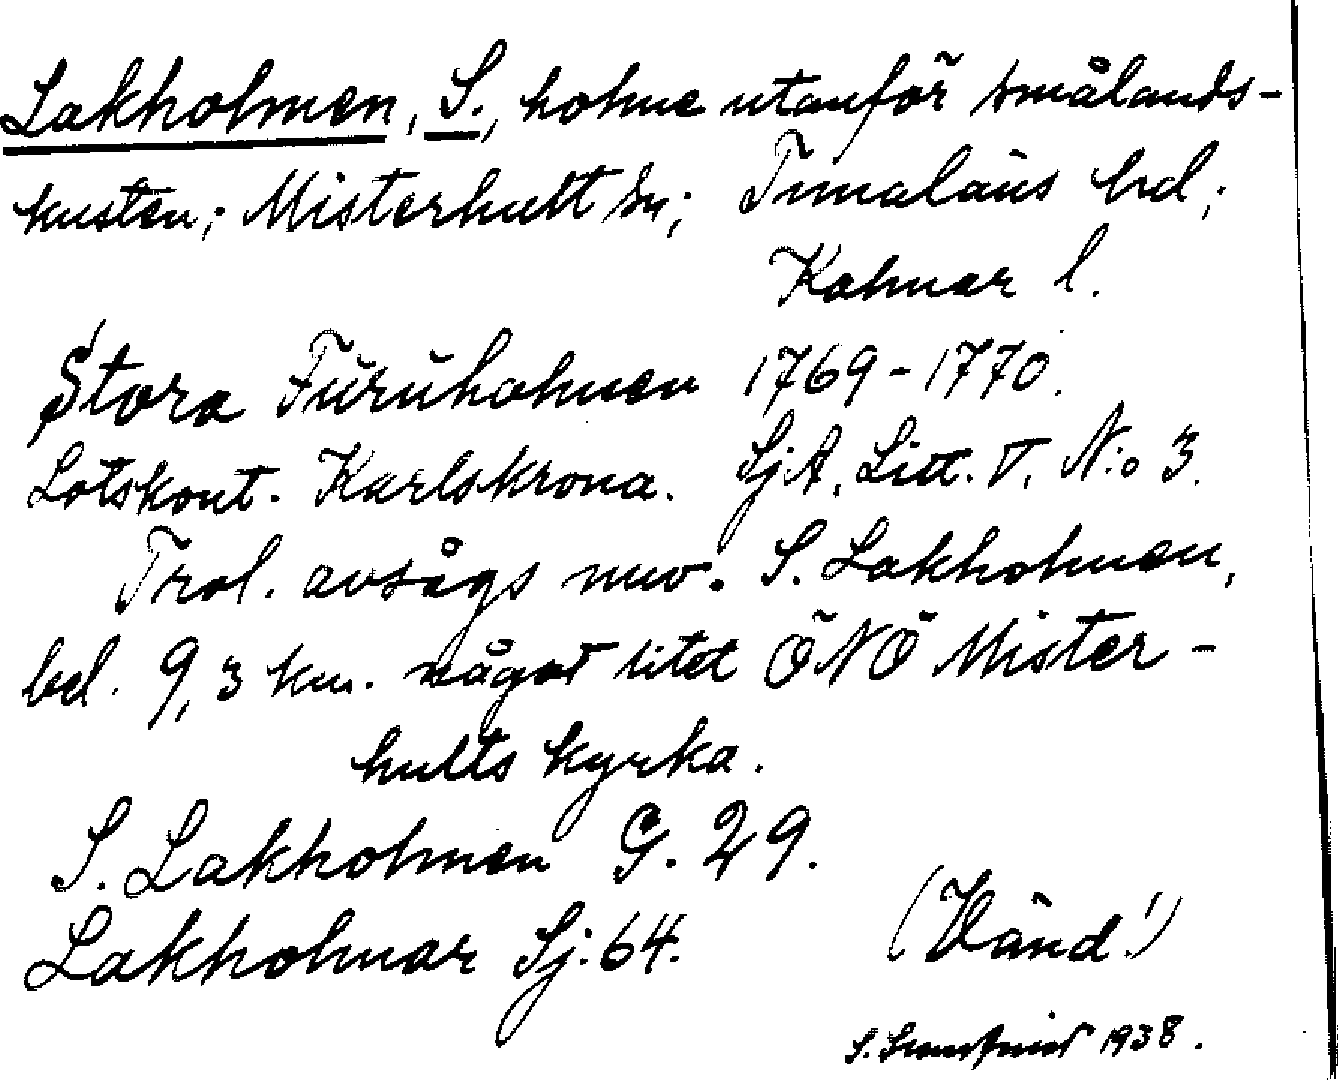 Lakholmen, S., holme utanför smålands-
kusten; Misterhult sn; Tunaläns hd;
Kalmar l.
Stora Furuholmen 1769-1770.
Lotskont. Karlskrona. SjA, Litt. V. N:o 3.
Trol. avsågs nuv. S. Lakholmen,
bel. 9,3 km. något litet ÖNÖ Mister-
hults kyrka.
S. Lakholmen G. 29.
Lakholmar Sj: 64.
(Vänd!)
S. 1938.